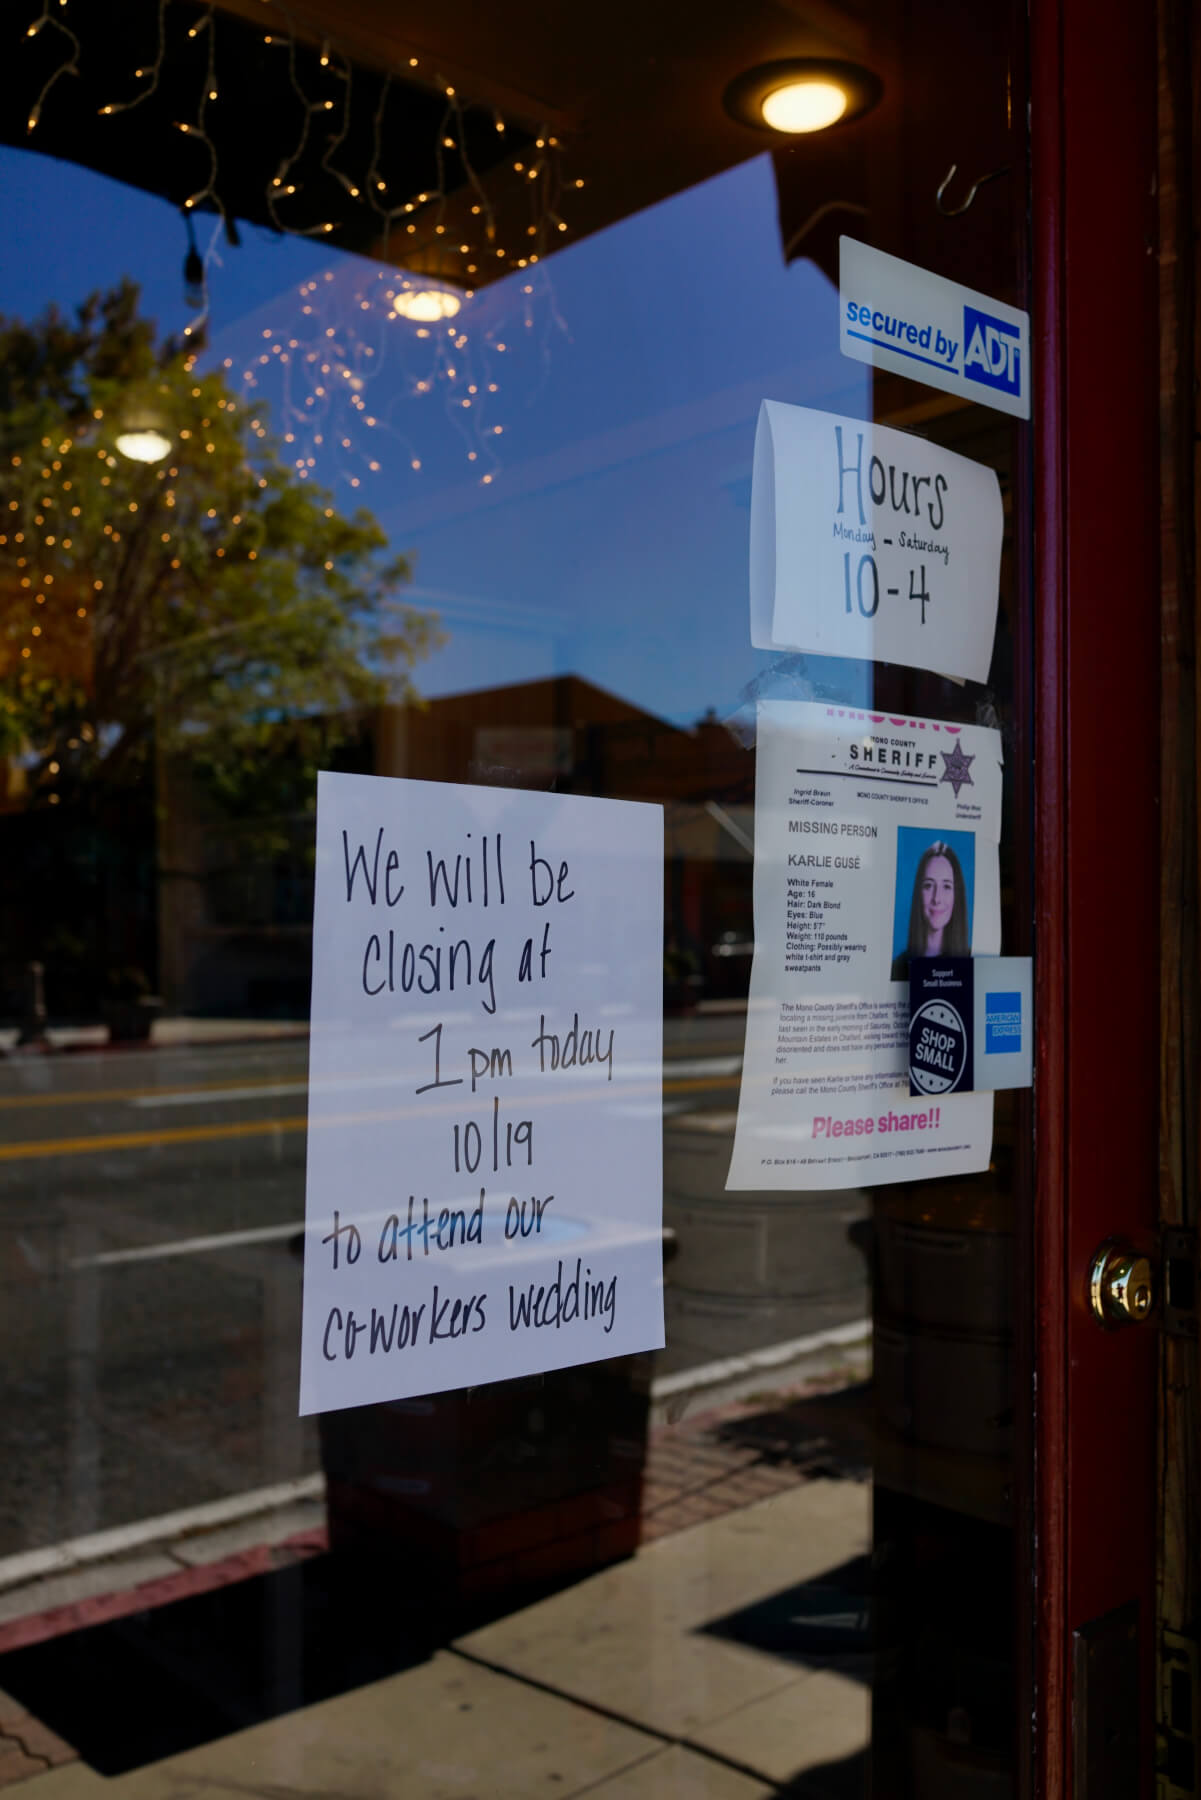 secured by ADT
Hours
Monday - Saturday
10-4
MISSING
MONO COUNTY
SHERIFF
A Commitment to Community Safety and Service
Ingrid Braun
Sheriff-Coroner
MONO COUNTY SHERIFF'S OFFICE
Phillip West
Undersheriff
MISSING PERSON
KARLIE GUSÉ
White Female
Age: 16
Hair: Dark Blond
Eyes: Blue
Height: 5'7"
Weight: 110 pounds
Clothing: Possibly wearing
white t-shirt and gray
sweatpants
The Mono County Sheriff's Office is seeking the
locating a missing juvenile from Chalfant.
last seen in the early morning of Saturday,
Mountain Estates in Chalfant, walking toward
disoriented and does not have any personal
her.
If you have seen Karlie or have any information
please call the Mono County Sheriff's Office at
Please share!!
Support
Small Business
SHOP
SMALL
AMERICAN
EXPRESS
We will be
closing at
1pm today
10/19
to attend our
co-workers wedding